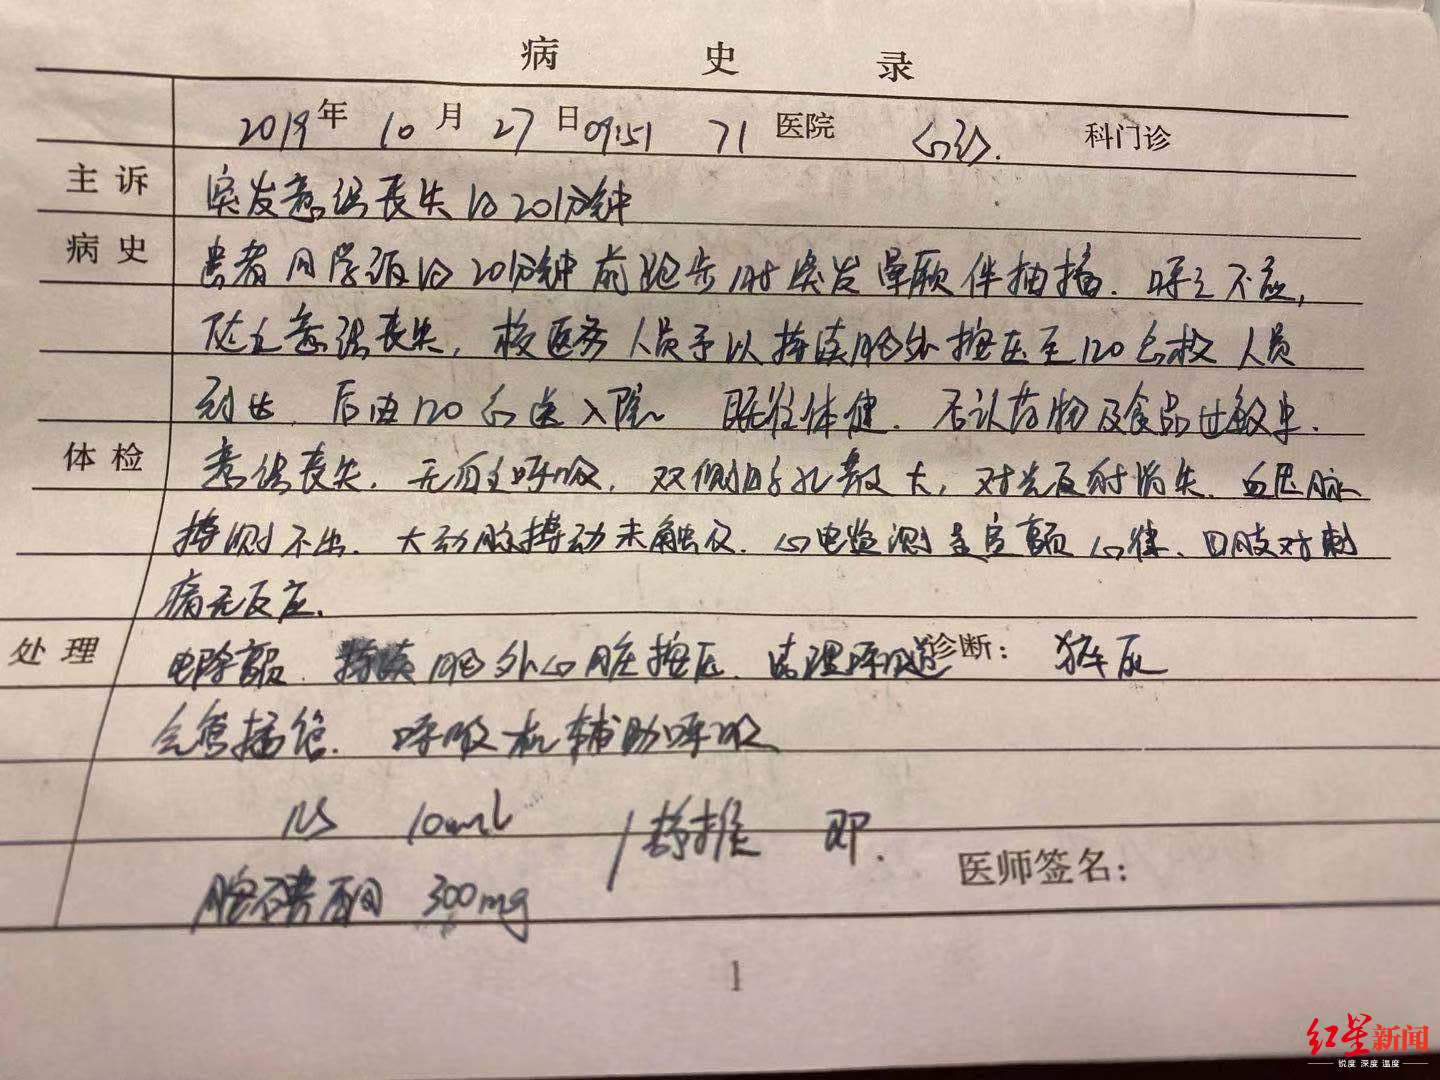 病 史 录
2019年 10月 27日 09:51 71 医院 急诊. 科门诊
主诉 突发意识丧失约20分钟
病史 患者同学诉约20分钟前跑步时突发晕厥伴抽搐. 呼之不应,
随之意识丧失, 校医务人员予以持续胸外按压至120急救人员
到达, 后由120急送入院. 既往体健. 否认药物及食品过敏史.
体检 意识丧失, 无自主呼吸, 双侧瞳孔散大, 对光反射消失. 血压脉
搏测不出. 大动脉搏动未触及. 心电监测是室颤心律、四肢对刺
痛无反应.
处理 电除颤. 持续胸外心脏按压. 清理呼吸道 诊断: 猝死
气管插管. 呼吸机辅助呼吸
NS 10ml / 静推 即.
胺碘酮 300mg
医师签名:
1
红星新闻
锐度 深度 温度